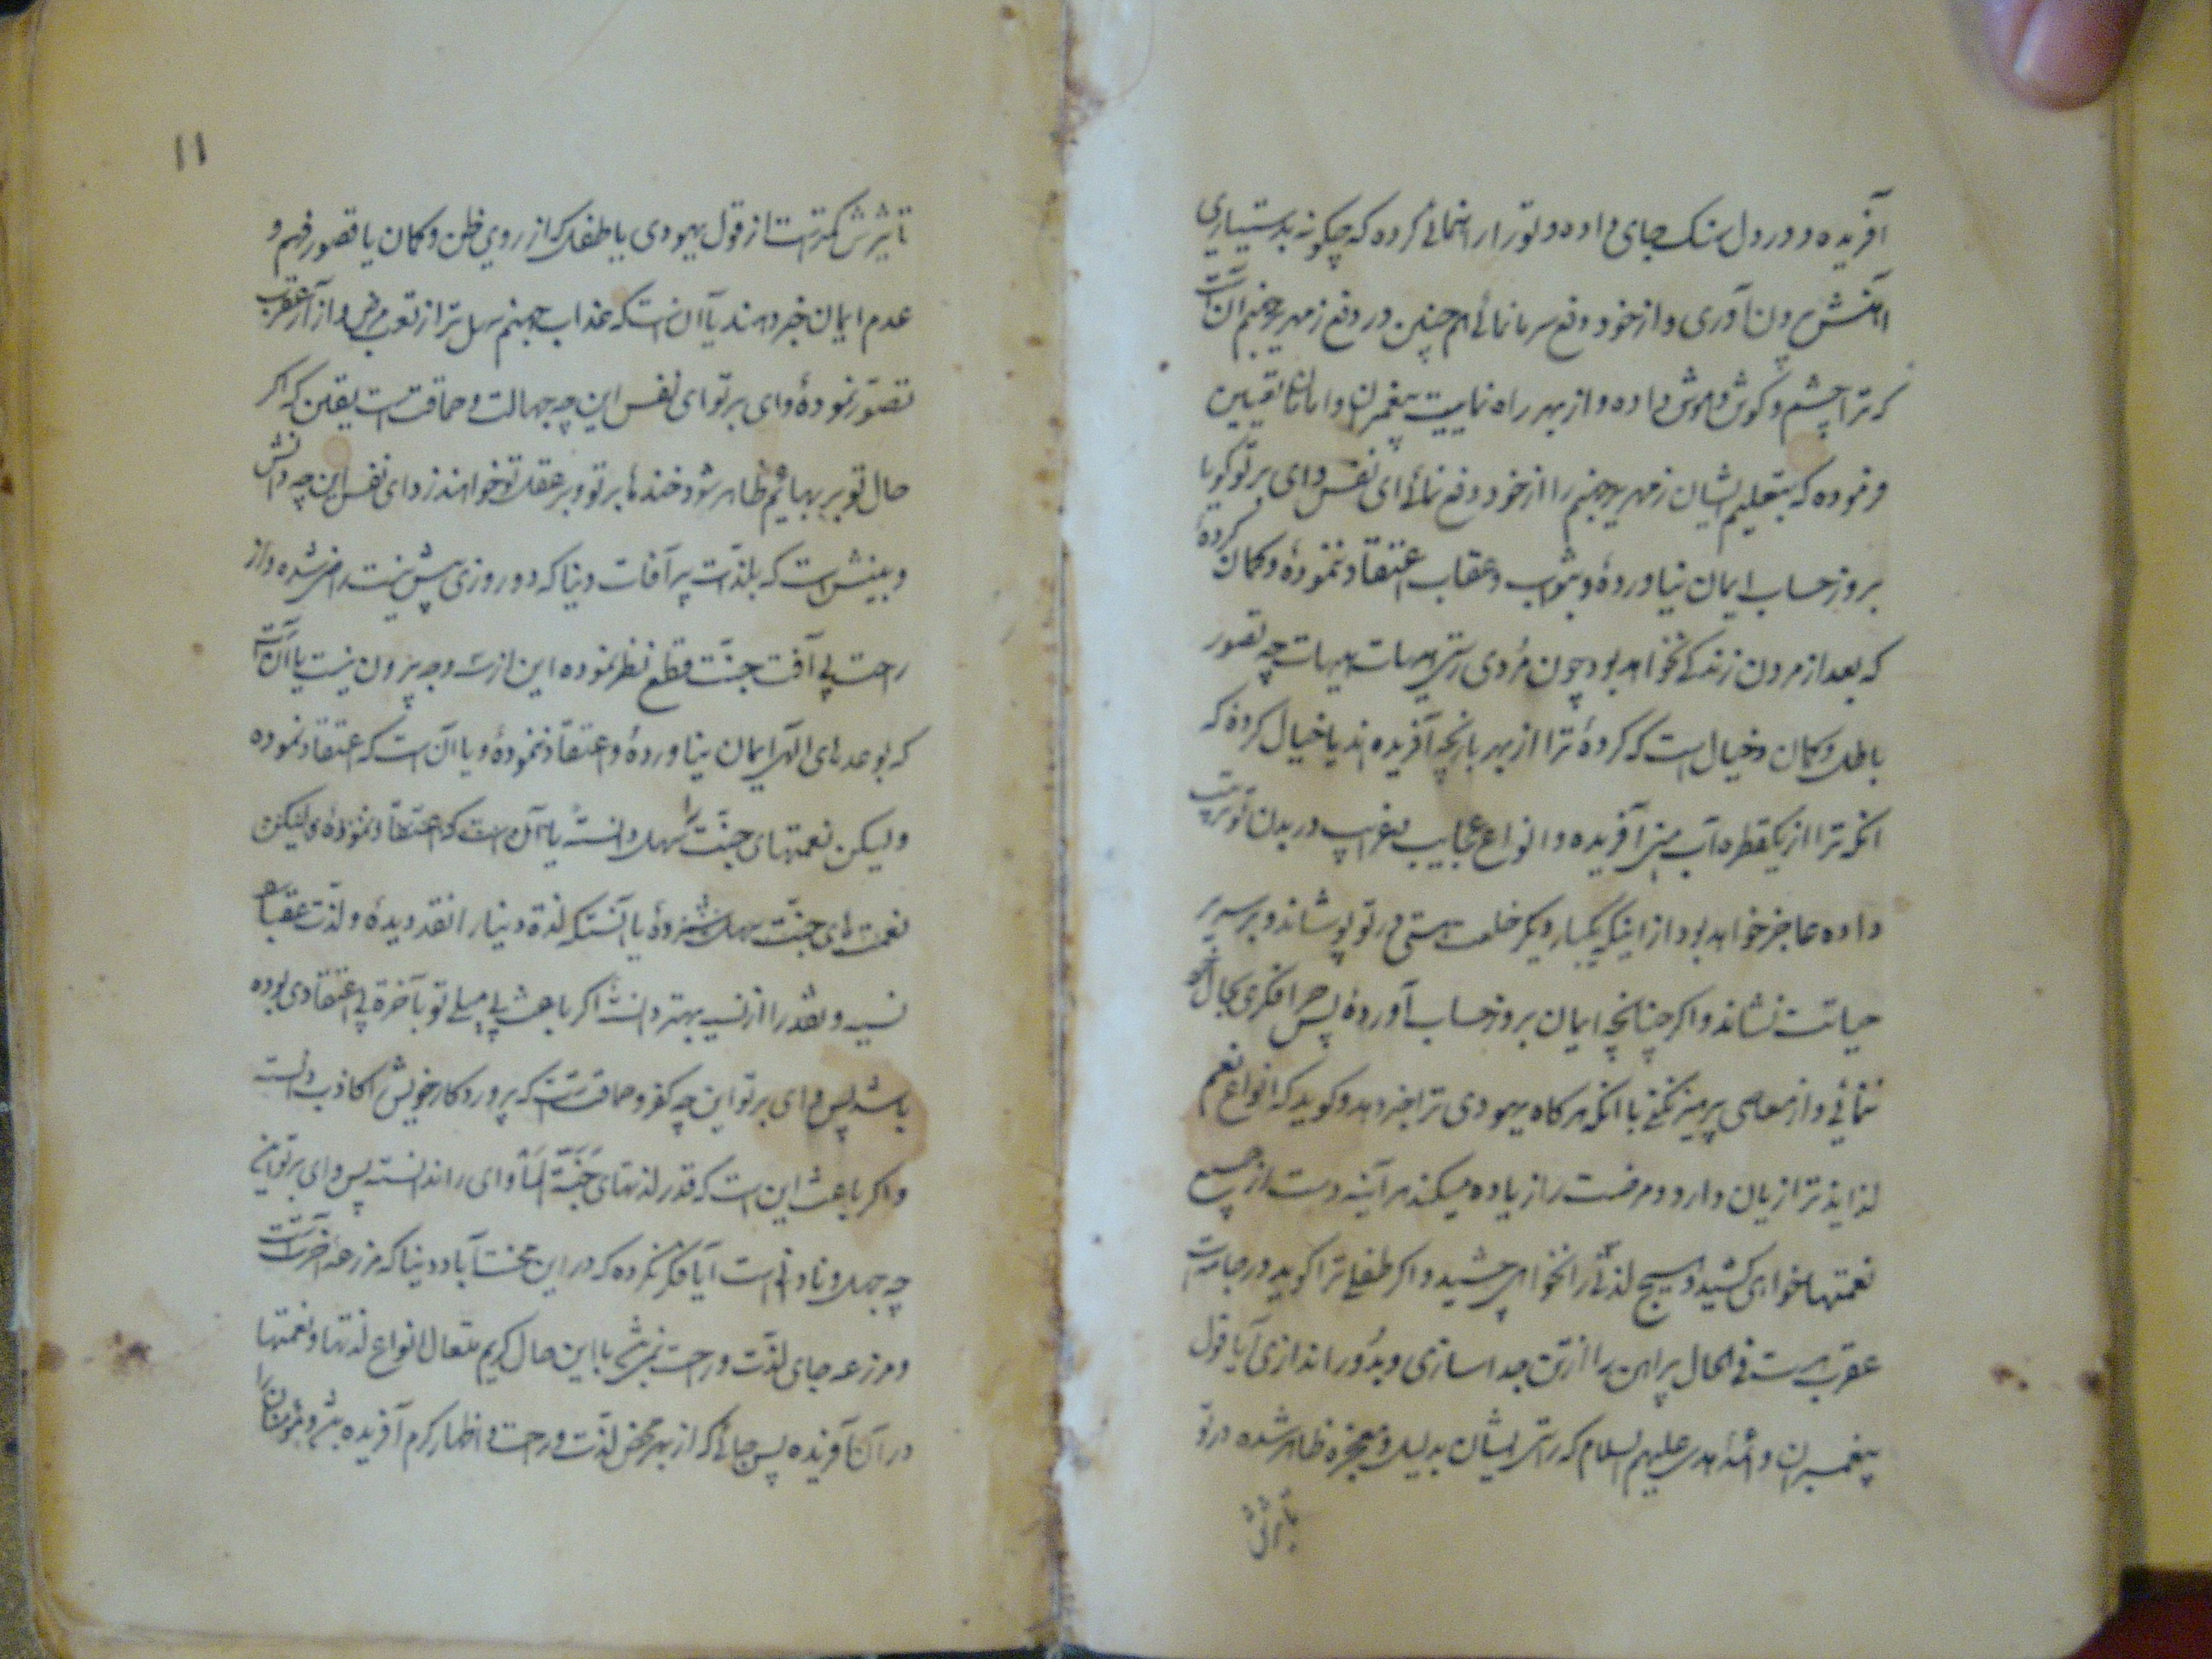 آفریده و در دل سنک جای داده و تو را راهنمائی کرده که چکونه بدستیاری
آهنش برون آوری و از خود دفع سرما نمائی همچنین در دفع زمهریر جهنم آنست
که ترا چشم و کوش و هوش داده و از بهر راه نمایی پیغمبران و امامان تعیین
فرموده که بتعلیم ایشان زمهریر جهنم را از خود دفع نمائی ای نفس وای بر تو کویا
بروز حساب ایمان نیاوردهٔ و بثواب و عقاب اعتقاد ننمودهٔ و کمان کردهٔ
که بعد از مردن زندکی نخواهد بود چون مُردی رستی هیهات هیهات چه تصور
باطل و کمان و خیال است که کردهٔ ترا از بهر بازیچه آفریده اند یا خیال کردهٔ که
آنکه ترا از یکقطره آب منی آفریده و انواع عجایب و غرایب در بدن تو ترتیب
داده عاجز خواهد بود از اینکه یکبار دیکر خلعت هستی در تو پوشاند و بر سریر
حیاتت نشاند و اکر چنانچه ایمان بروز حساب آوردهٔ پس چرا فکری بحال خود
ننمائی و از معاصی پرهیز نکنی با آنکه هرکاه یهودی ترا خبر دهد و کوید که انواع نعم
لذایذ ترا زیان دارد و مرضت را زیاده میکند هرآینه دست از جمیع
نعمتها خواهی کشید و هیچ لذتی را نخواهی چشید و اکر طفلی ترا کوید در جامه‌ات
عقرب هست فی الحال پیراهن را از تن جدا سازی و بدُور اندازی آیا قول
پیغمبران و ائمهٔ هدی علیهم السلام که راستی ایشان بدلیل و معجزه ظاهر شده در تو
تأثیرش
١١
تأثیرش کمتر است از قول یهودی یا طفل که از روی ظن و کمان یا قصور فهم و
عدم ایمان خبر دهند یا آن است که عذاب جهنم سهل تر از تعب مرض و از آزار عقرب
تصوّر نمودهٔ وای بر تو ای نفس این چه جهالت و حماقت است یقین که اکر
حال تو بر بهائم ظاهر شود خنده‌ها بر تو و بر عقل تو خواهند زد ای نفس این چه دانش
و بینش است که بلذّت پر آفات دنیا که دو روزی بیش نیست راضی شده و از
راحت بی آفت جنّت قطع نظر نموده این از سه وجه بیرون نیست یا آنست
که بوعدهای الهی ایمان نیاوردهٔ و اعتقاد ننمودهٔ و یا آن است که اعتقاد نموده
ولیکن نعمتهای جنّت را سهل دانستهٔ یا آن است که اعتقاد نمودهٔ ولیکن
نعمتهای جنّت سهل شمردهٔ یا آنستکه لذة دنیا را نقد دیدهٔ و لذّت عقبا را
نسیه و نقد را از نسیه بهتر دانستهٔ اکر باعث بی میلی تو بآخرة بی اعتقادی بوده
باشد پس وای بر تو این چه کفر و حماقتست که پروردکار خویش را کاذب دانسته
و اکر باعث این است که قدر لذتهای جَنّة المَأوای را ندانسته پس وای بر تو این
چه جهل و نادانی است آیا فکر نکرده که در این محنت آباد دنیا که مزرعهٔ آخرتست
و مزرعه جای لذّت و راحت نمیباشد با این حال کریم متعال انواع لذتها و نعمتها
در آن آفریده پس جائی که از بهر محض لذّت و راحت و اظهار کرم آفریده باشد و مؤمنان را